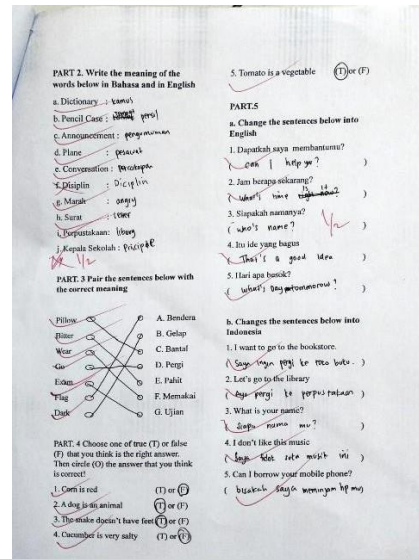 PART 2. Write the meaning of the
words below in Bahasa and in English
a. Dictionary : kamus
b. Pencil Case : pensil
c. Announcement : pengumuman
d. Plane : pesawat
e. Conversation : percakapan
f. Disiplin : Diciplin
g. Marah : angry
h. Surat : letter
i. Perpustakaan : library
j. Kepala Sekolah :
1/2
PART. 3 Pair the sentences below with
the correct meaning
Pillow A. Bendera
Bitter B. Gelap
Wear C. Bantal
Go D. Pergi
Exam E. Pahit
Flag F. Memakai
Dark G. Ujian
PART. 4 Choose one of true (T) or false
(F) that you think is the right answer.
Then circle (O) the answer that you think
is correct!
1. Corn is red (T) or (F)
2. A dog is an animal (T) or (F)
3. The snake doesn't have feet (T) or (F)
4. Cucumber is very salty (T) or (F)
5. Tomato is a vegetable (T) or (F)
PART.5
a. Change the sentences below into
English
1. Dapatkah saya membantumu?
( can I help you? )
2. Jam berapa sekarang?
( what's time )
3. Siapakah namanya?
( who's name? ) 1/2
4. Itu ide yang bagus
( That's a good idea )
5. Hari apa besok?
( what's Day tommorow? )
b. Changes the sentences below into
Indonesia
1. I want to go to the bookstore.
( Saya ingin pergi ke toko buku. )
2. Let's go to the library
( Ayo pergi ke perpustakaan )
3. What is your name?
( siapa nama mu? )
4. I don't like this music
( Saya tidak suka musik ini )
5. Can I borrow your mobile phone?
( bisakah saya meminjam hp mu )